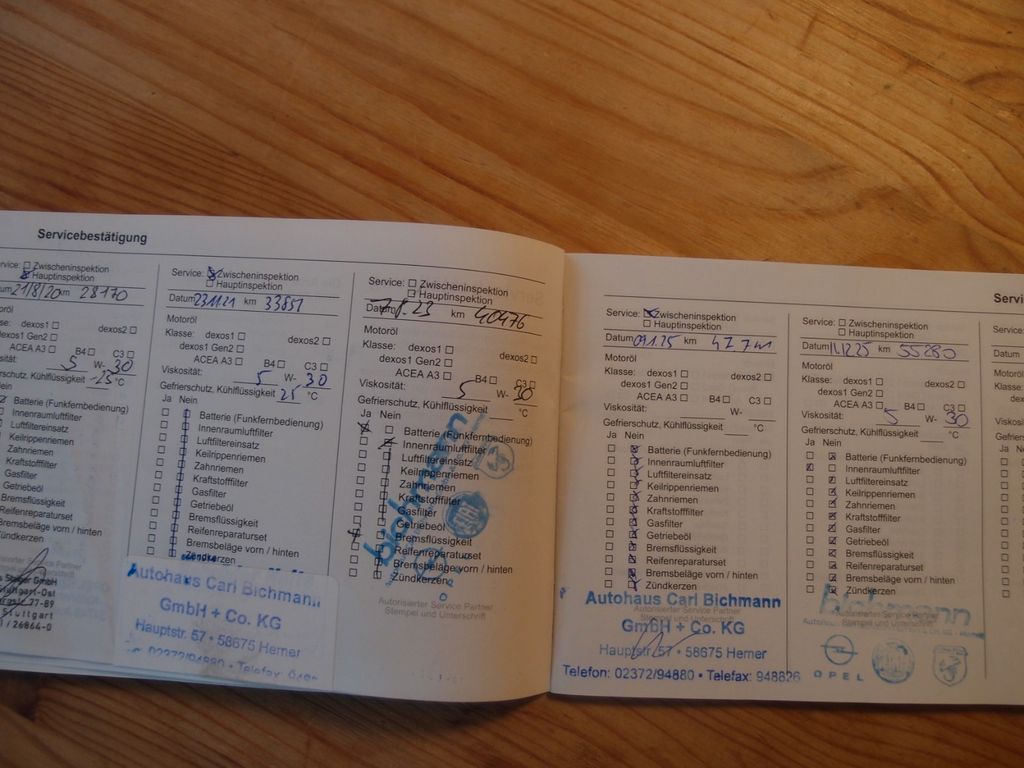 Servicebestätigung
Service: Zwischeninspektion
Hauptinspektion
21/8/20 km 28170
dexos1
dexos2
dexos1 Gen2
ACEA A3 B4 C3
5 W-30
Gefrierschutz, Kühlflüssigkeit -25 °C
Nein
Batterie (Funkfernbedienung)
Innenraumluftfilter
Luftfiltereinsatz
Keilrippenriemen
Zahnriemen
Kraftstofffilter
Gasfilter
Getriebeöl
Bremsflüssigkeit
Reifenreparaturset
Bremsbeläge vorn / hinten
Zündkerzen
Service: Zwischeninspektion
Hauptinspektion
Datum km 33851
Motoröl
Klasse: dexos1 dexos2
dexos1 Gen2
ACEA A3 B4 C3
Viskosität: 5 W- 30
Gefrierschutz, Kühlflüssigkeit 25 °C
Ja Nein
Batterie (Funkfernbedienung)
Innenraumluftfilter
Luftfiltereinsatz
Keilrippenriemen
Zahnriemen
Kraftstofffilter
Gasfilter
Getriebeöl
Bremsflüssigkeit
Reifenreparaturset
Bremsbeläge vorn / hinten
Zündkerzen
Autohaus Carl Bichmann
GmbH + Co. KG
Hauptstr. 57 • 58675 Hemer
02372/94880 • Telefax
Service: Zwischeninspektion
Hauptinspektion
Datum km 40476
Motoröl
Klasse: dexos1 dexos2
dexos1 Gen2
ACEA A3 B4 C3
Viskosität: 5 W- 30
Gefrierschutz, Kühlflüssigkeit °C
Ja Nein
Batterie (Funkfernbedienung)
Innenraumluftfilter
Luftfiltereinsatz
Keilrippenriemen
Zahnriemen
Kraftstofffilter
Gasfilter
Getriebeöl
Bremsflüssigkeit
Reifenreparaturset
Bremsbeläge vorn / hinten
Zündkerzen
bichmann
Autorisierter Service Partner
Stempel und Unterschrift
Service: Zwischeninspektion
Hauptinspektion
Datum 09.1.25 km
Motoröl
Klasse: dexos1 dexos2
dexos1 Gen2
ACEA A3 B4 C3
Viskosität: W-
Gefrierschutz, Kühlflüssigkeit °C
Ja Nein
Batterie (Funkfernbedienung)
Innenraumluftfilter
Luftfiltereinsatz
Keilrippenriemen
Zahnriemen
Kraftstofffilter
Gasfilter
Getriebeöl
Bremsflüssigkeit
Reifenreparaturset
Bremsbeläge vorn / hinten
Zündkerzen
Autohaus Carl Bichmann
Autorisierter Service Partner
Stempel und Unterschrift
GmbH + Co. KG
Hauptstr. 57 • 58675 Hemer
Telefon: 02372/94880 • Telefax: 948826
Service: Zwischeninspektion
Hauptinspektion
Datum km 55280
Motoröl
Klasse: dexos1 dexos2
dexos1 Gen2
ACEA A3 B4 C3
Viskosität: 5 W- 30
Gefrierschutz, Kühlflüssigkeit °C
Ja Nein
Batterie (Funkfernbedienung)
Innenraumluftfilter
Luftfiltereinsatz
Keilrippenriemen
Zahnriemen
Kraftstofffilter
Gasfilter
Getriebeöl
Bremsflüssigkeit
Reifenreparaturset
Bremsbeläge vorn / hinten
Zündkerzen
bichmann
OPEL
Service:
Datum
Ja